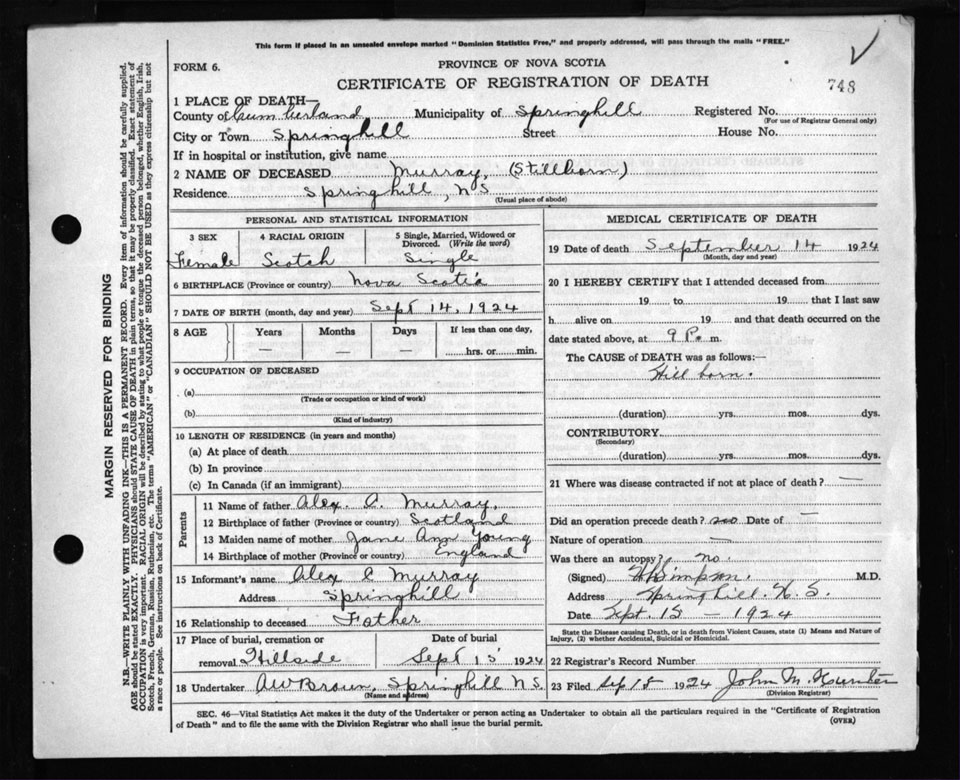 This form if placed in an unsealed envelope marked "Dominion Statistics Free," and properly addressed, will pass through the mails "FREE."
FORM 6.
PROVINCE OF NOVA SCOTIA
CERTIFICATE OF REGISTRATION OF DEATH
748
1 PLACE OF DEATH—
County of Cumberland Municipality of Springhill Registered No.
(For use of Registrar General only)
City or Town Springhill Street House No.
If in hospital or institution, give name
2 NAME OF DECEASED Murray, (Stillborn)
Residence Springhill, N S
(Usual place of abode)
PERSONAL AND STATISTICAL INFORMATION
3 SEX 4 RACIAL ORIGIN 5 Single, Married, Widowed or Divorced. (Write the word)
Female Scotch Single
6 BIRTHPLACE (Province or country) Nova Scotia
7 DATE OF BIRTH (month, day and year) Sept 14, 1924
8 AGE Years Months Days If less than one day,
— — — hrs. or min.
9 OCCUPATION OF DECEASED
(a)
(Trade or occupation or kind of work)
(b)
(Kind of industry)
10 LENGTH OF RESIDENCE (in years and months)
(a) At place of death
(b) In province
(c) In Canada (if an immigrant)
Parents
11 Name of father Alex. A. Murray,
12 Birthplace of father (Province or country) Scotland
13 Maiden name of mother Jane Ann Young
14 Birthplace of mother (Province or country) England
15 Informant's name Alex Murray
Address Springhill
16 Relationship to deceased Father
17 Place of burial, cremation or Date of burial
removal Hillside Sept 15 1924
18 Undertaker A W Brown, Springhill N S.
(Name and address)
MEDICAL CERTIFICATE OF DEATH
19 Date of death September 14 1924
(Month, day and year)
20 I HEREBY CERTIFY that I attended deceased from
19 to 19 that I last saw
h alive on 19 and that death occurred on the
date stated above, at 9 P. m.
The CAUSE of DEATH was as follows:—
Still born.
(duration) yrs. mos. dys.
CONTRIBUTORY
(Secondary)
(duration) yrs. mos. dys.
21 Where was disease contracted if not at place of death? —
Did an operation precede death? no Date of —
Nature of operation —
Was there an autopsy? no.
(Signed) Simpson. M.D.
Address Springhill. N. S.
Date Sept. 15 — 1924
State the Disease causing Death, or in death from Violent Causes, state (1) Means and Nature of
Injury, (2) whether Accidental, Suicidal or Homicidal.
22 Registrar's Record Number
23 Filed Sep 18 1924 John M. Hunter
(Division Registrar)
SEC. 46—Vital Statistics Act makes it the duty of the Undertaker or person acting as Undertaker to obtain all the particulars required in the "Certificate of Registration
of Death" and to file the same with the Division Registrar who shall issue the burial permit.
(OVER)
MARGIN RESERVED FOR BINDING
N.B.—WRITE PLAINLY WITH UNFADING INK—THIS IS A PERMANENT RECORD. Every item of information should be carefully supplied.
AGE should be stated EXACTLY. PHYSICIANS should STATE CAUSE OF DEATH in plain terms, so that it may be properly classified. Exact statement of
OCCUPATION is very important. RACIAL ORIGIN will be described by stating to what people or tongue the deceased person belonged, whether English, Irish,
Scotch, French, German, Russian, Ruthenian, etc. The terms "AMERICAN" or "CANADIAN" SHOULD NOT BE USED as they express citizenship but not
a race or people. See instructions on back of Certificate.